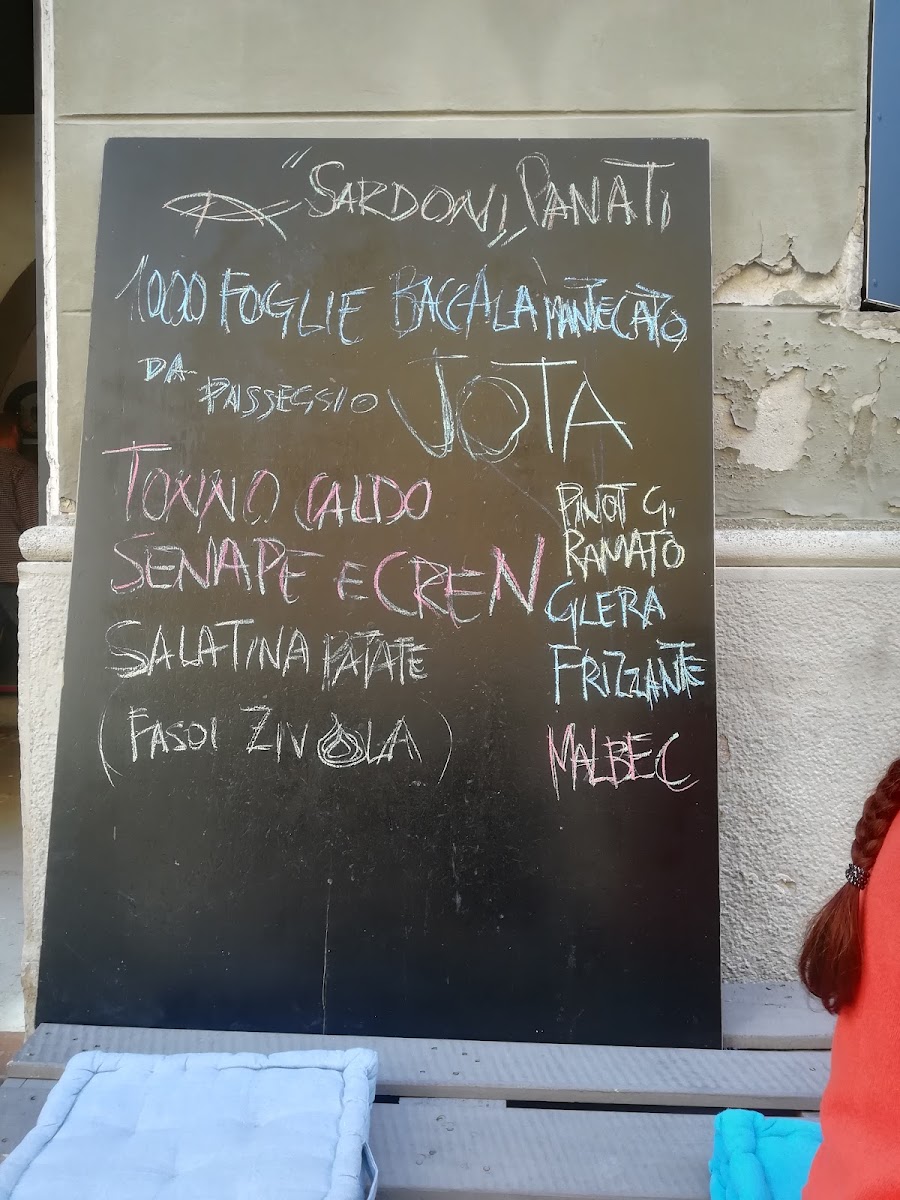 "SARDONI" PANATI
1000 FOGLIE BACCALÀ MANTECATO
DA PASSEGGIO JOTA
TONNO CALDO
SENAPE E CREN
SALATINA PATATE
(FASOI ZIVOLA)
PINOT G.
RAMATO
GLERA
FRIZZANTE
MALBEC